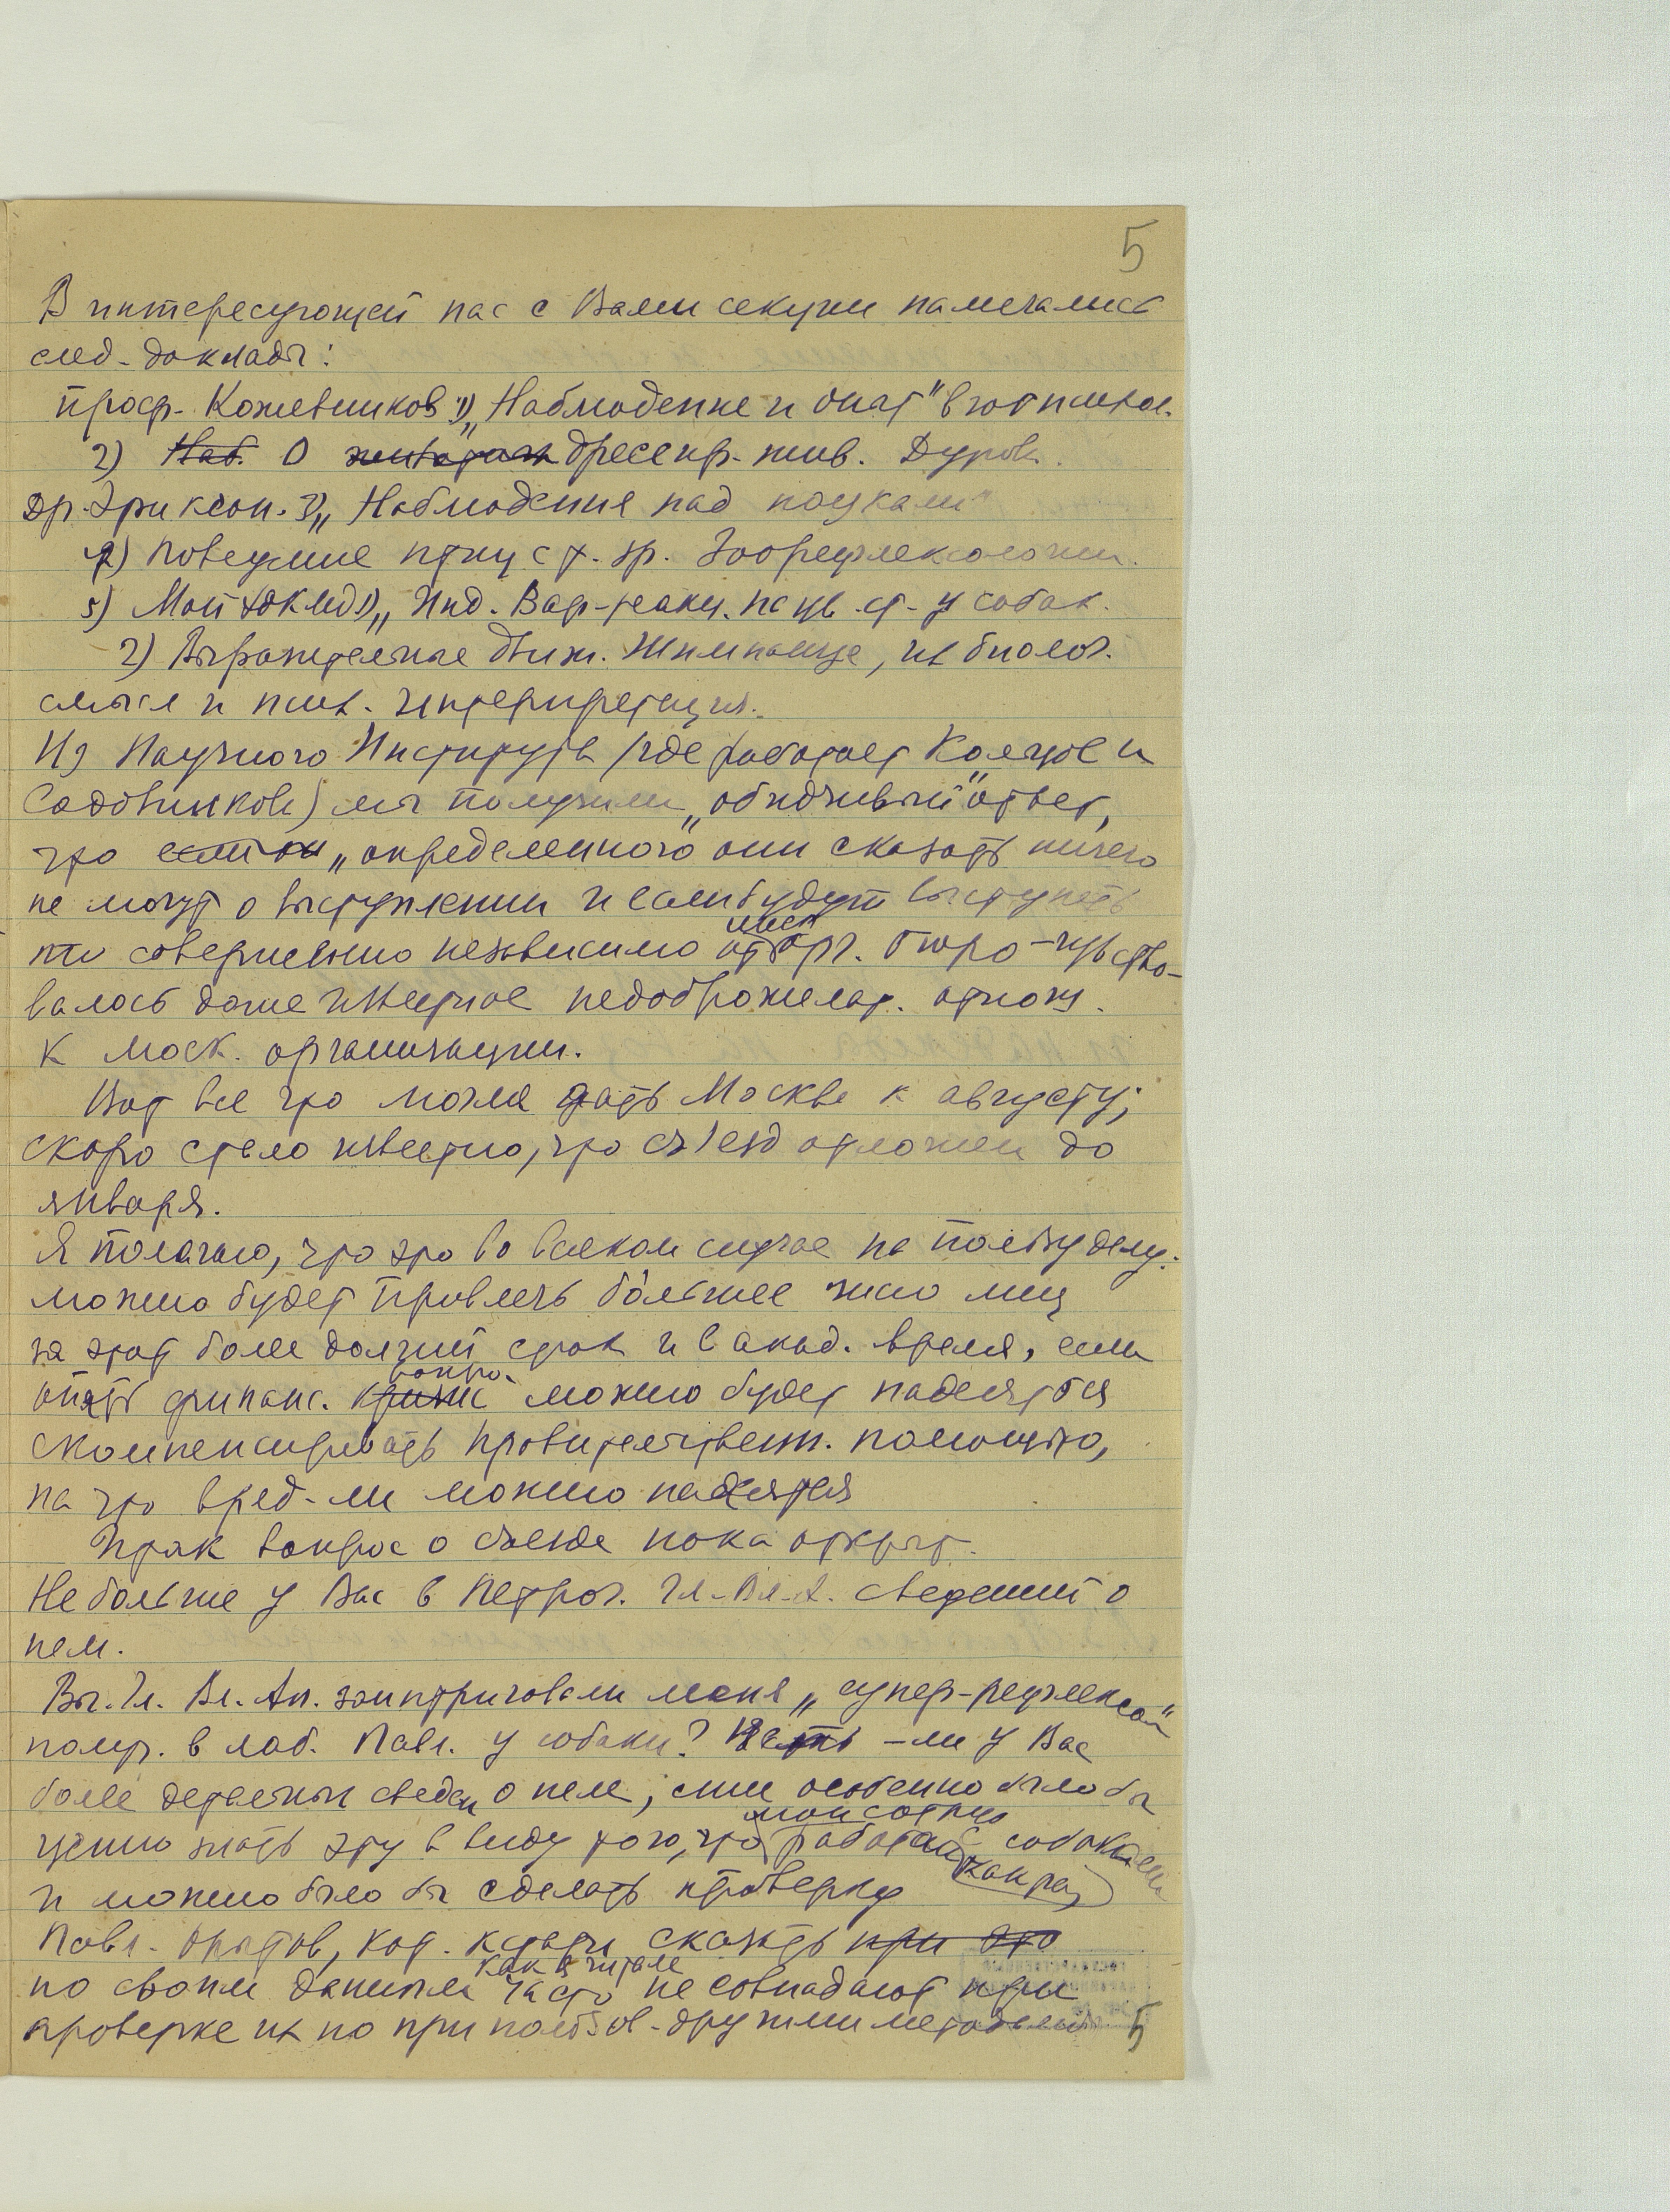 5
В интересующей нас с Вами секции намечались
след. доклады:
проф. Кожевников 1) „Наблюдение и опыт" в зоопсихол.
2) Наб. О дрессир. жив. Дуров.
др. Эриксон. 3) „Наблюдения над пауками"
4) Поведение птиц с т. зр. Зоорефлексологии.
5) Мой доклад 1) „Инд. Вар. реакц. на цв. ст. у собак.
2) Выразительные движ. Шимпанзе, их биолог.
смысл и псих. интерпретация.
Из Научного Института (где работает Кольцов и
Садовникова) мы получили „обидчивый" ответ,
что „определенного они сказать ничего
не могут о выступлении и если будут выступать
то совершенно независимо от моск. орг. бюро – чувство-
валось даже известное недоброжелат. отнош.
к моск. организации.
Вот все что могла дать Москва к августу;
скоро стало известно, что съезд отложен до
января.
Я полагаю, что это во всяком случае на пользу делу:
можно будет привлечь большее число лиц
на этот более долгий срок и в акад. время, если
опять финанс. кризис вопро. можно будет надеяться
скомпенсировать правительственн. помощью,
на что вряд-ли можно надеяться
Итак вопрос о съезде пока открыт.
Не больше у Вас в Петрог. Гл. Вл. А. сведений о
нем.
Вы. Гл. Вл. Ал. заинтриговали меня „супер-рефлексом"
получ. в лаб. Павл. у собаки? Есть-ли у Вас
более детальн сведен о нем, мне особенно было бы
ценно знать эту в виду того, что мои сотруд работают с собаками
и можно было бы сделать проверку как раз
Павл. опытов, кот. кстати сказать при это
по своим данным как я читала часто не совпадают при
проверке их по при пользов. другими методами
5